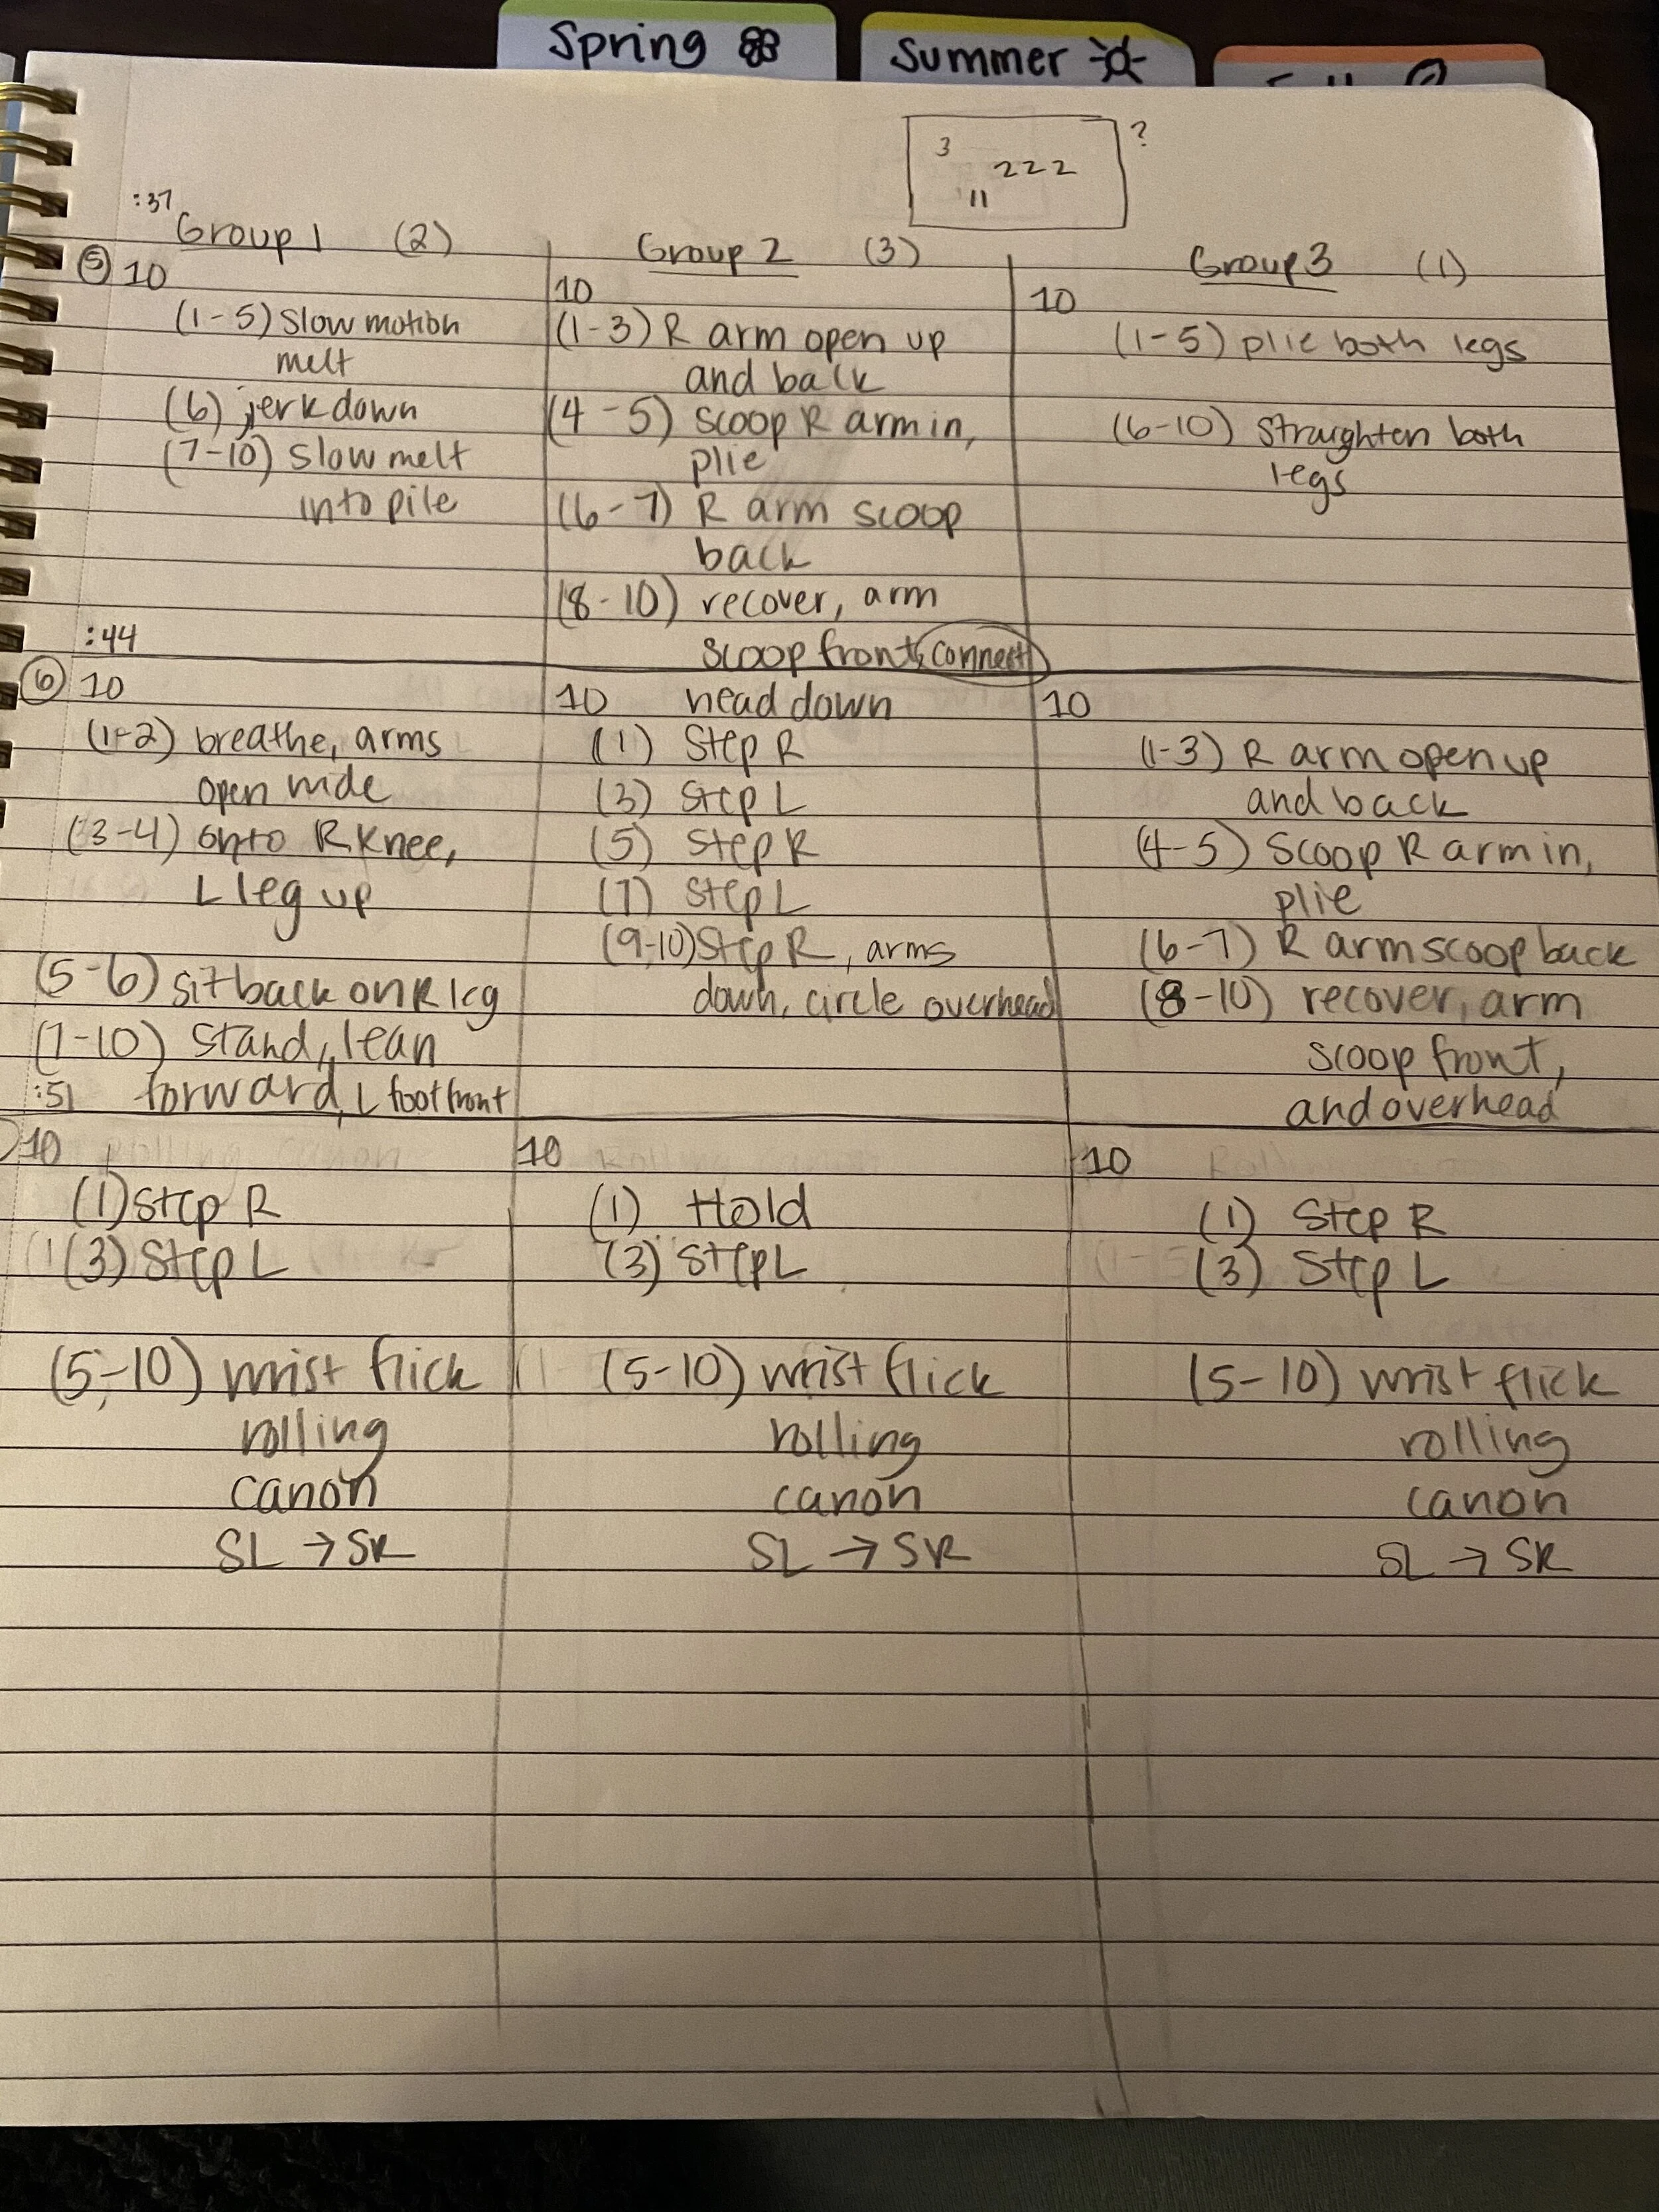 Spring
Summer
3
222
11
?
:37
Group 1 (2)
5 10
(1-5) Slow motion
melt
(6) jerk down
(7-10) Slow melt
into pile
:44
Group 2 (3)
10
(1-3) R arm open up
and back
(4-5) scoop R arm in,
plie
(6-7) R arm scoop
back
(8-10) recover, arm
scoop front, connect
Group 3 (1)
10
(1-5) plie both legs
(6-10) Straighten both
legs
6 10
(1-2) breathe, arms
open wide
(3-4) onto R knee,
L leg up
(5-6) sit back on R leg
(7-10) Stand, lean
:51 forward, L foot front
10 head down
(1) Step R
(3) Step L
(5) Step R
(7) Step L
(9-10) Step R, arms
down, circle overhead
10
(1-3) R arm open up
and back
(4-5) Scoop R arm in,
plie
(6-7) R arm scoop back
(8-10) recover, arm
scoop front,
and overhead
10
(1) Step R
(3) Step L
(5-10) wrist flick
rolling
canon
SL → SR
10
(1) Hold
(3) Step L
(5-10) wrist flick
rolling
canon
SL → SR
10
(1) Step R
(3) Step L
(5-10) wrist flick
rolling
canon
SL → SR